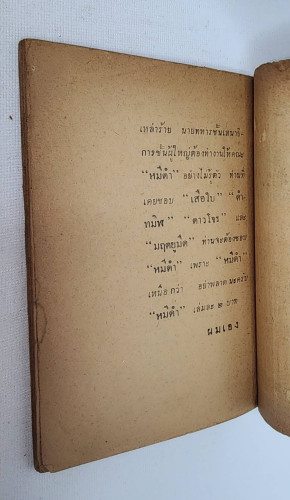 เหล่าร้าย นายทหารชั้นเสนาธิ-
การชั้นผู้ใหญ่ต้องทำงานให้คณะ
"หมีดำ" อย่างไม่รู้ตัว ท่านที่
เคยชอบ "เสือใบ" "ดำ-
ทมิฬ" "ดาวโจร" และ
"มฤตยูมืด" ท่านจะต้องชอบ
"หมีดำ" เพราะ "หมีดำ"
เหนือกว่า อย่าพลาดนะครับ
"หมีดำ" เล่มละ ๒ บาท
ผมเอง